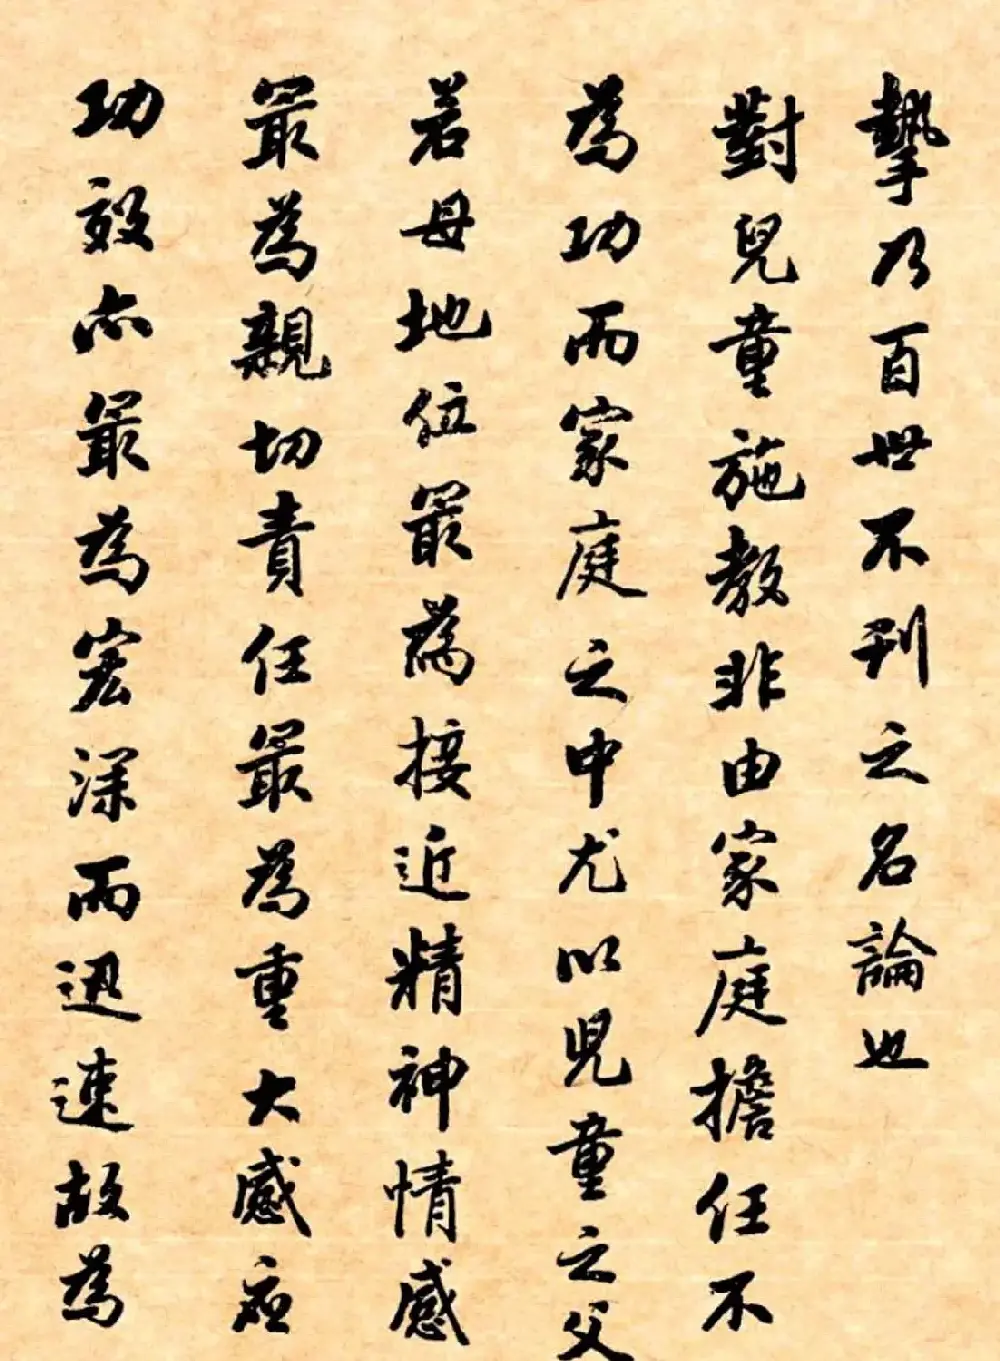 摯乃百世不刊之名論也
對兒童施教非由家庭擔任不
為功而家庭之中尤以兒童之父
若母地位最為接近精神情感
最為親切責任最為重大感應
功效亦最為宏深而迅速故為